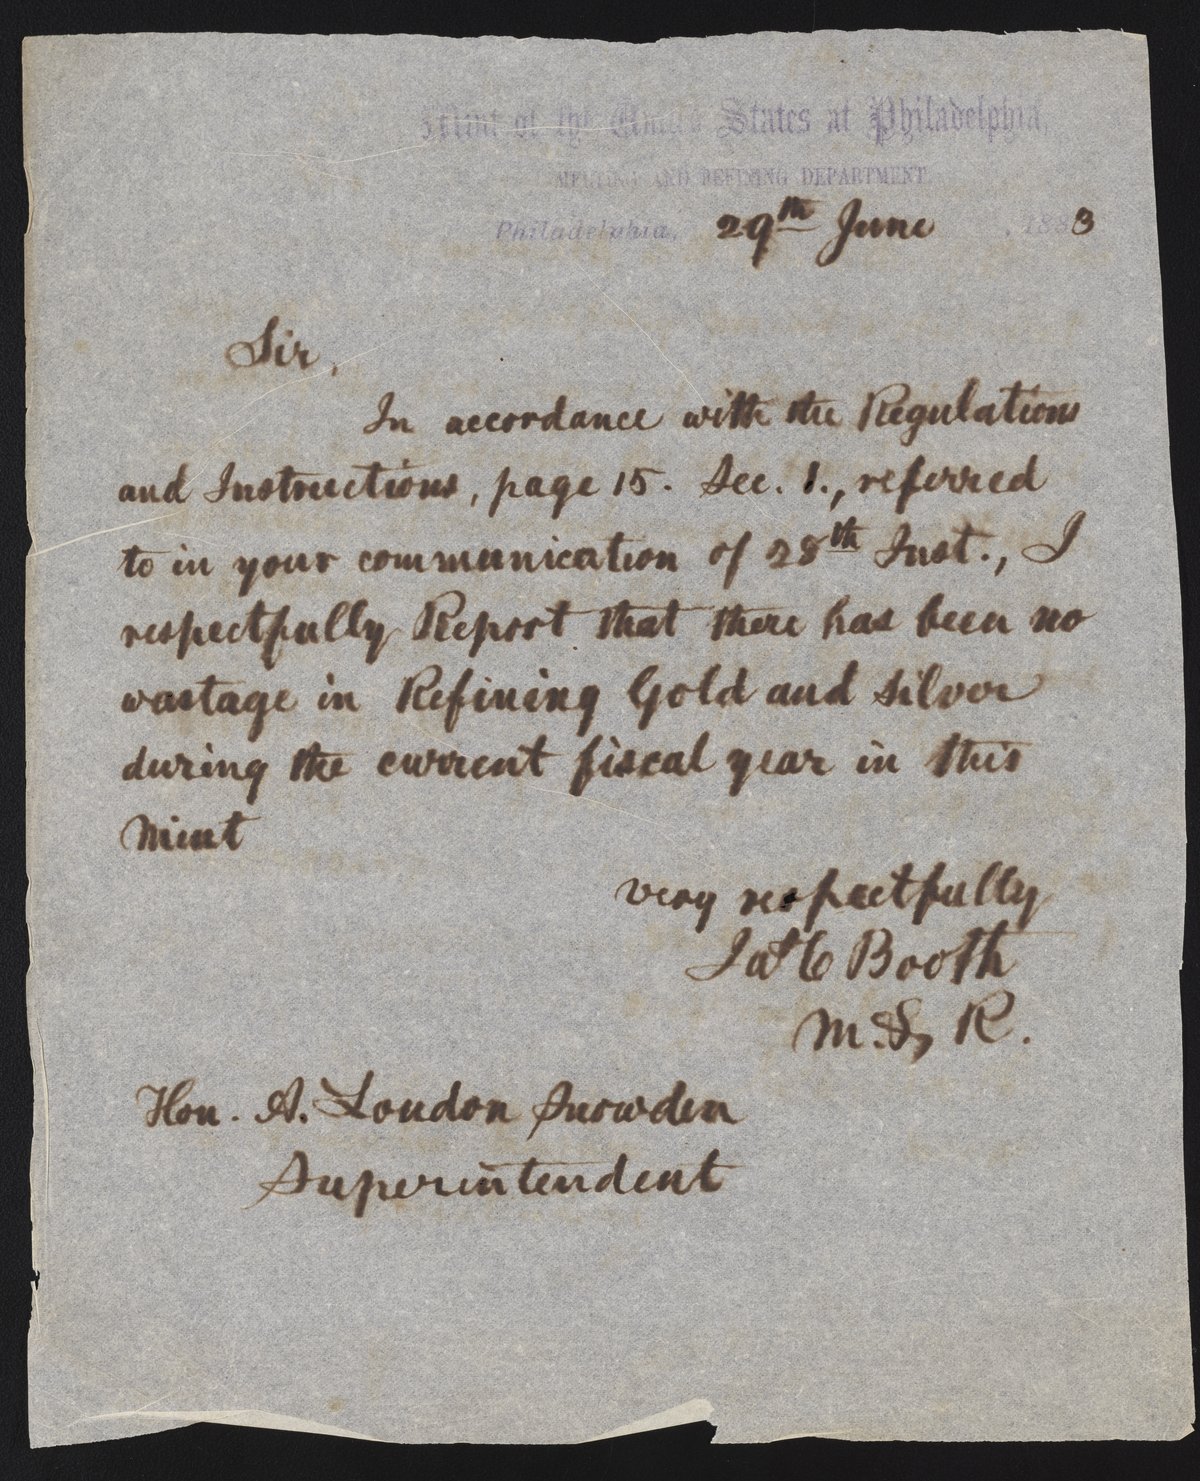 Mint of the United States at Philadelphia,
MELTING AND REFINING DEPARTMENT.
Philadelphia, 29th June, 1883
Sir,
In accordance with the Regulations
and Instructions, page 15. Sec. 1., referred
to in your communication of 28th Inst., I
respectfully Report that there has been no
wastage in Refining Gold and Silver
during the current fiscal year in this
Mint
very respectfully
Jas C Booth
M. & R.
Hon. A. Loudon Snowden
Superintendent